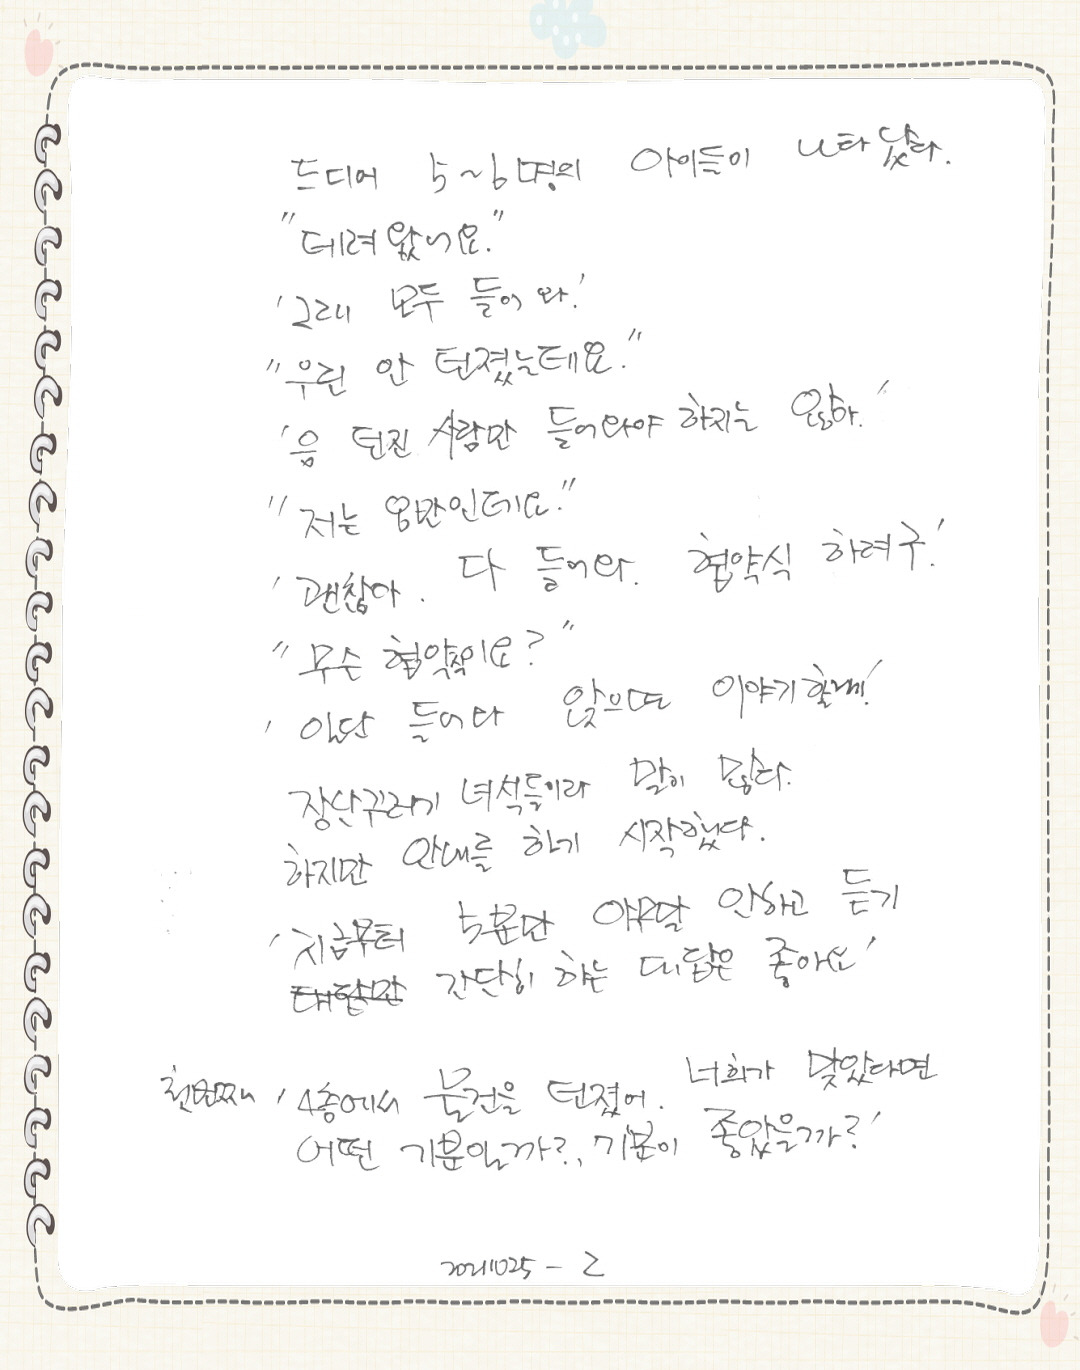 드디어 5~6명의 아이들이 나타났다.
"데려왔어요."
'그래 모두 들어와.'
"우린 안 던졌는데요."
'음 던진 사람만 들어와야 하지는 않아.'
"저는 옆반인데요."
'괜찮아. 다 들어와. 협약식 하려구.'
"무슨 협약식이요?"
'일단 들어다 앉으면 이야기할께!'
장난꾸러기 녀석들이라 말이 많다.
하지만 안내를 하기 시작했다.
'지금부터 5분만 아무말 안하고 듣기
대답만 간단히 하는 대답은 좋아요'
첫번째 '4층에서 물건을 던졌어. 너희가 맞았다면
어떤 기분일까?, 기분이 좋았을까?'
20211025 - 2